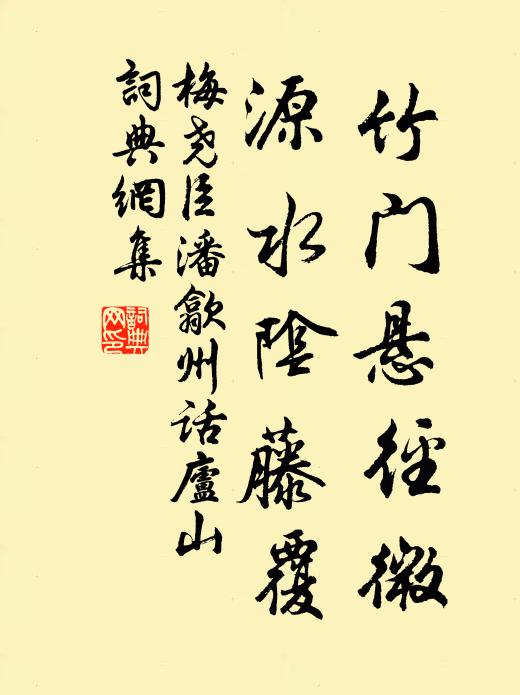 竹门悬径微
源水阴藤覆
梅尧臣潘歙州话廬山
詞典網集
詞典网印